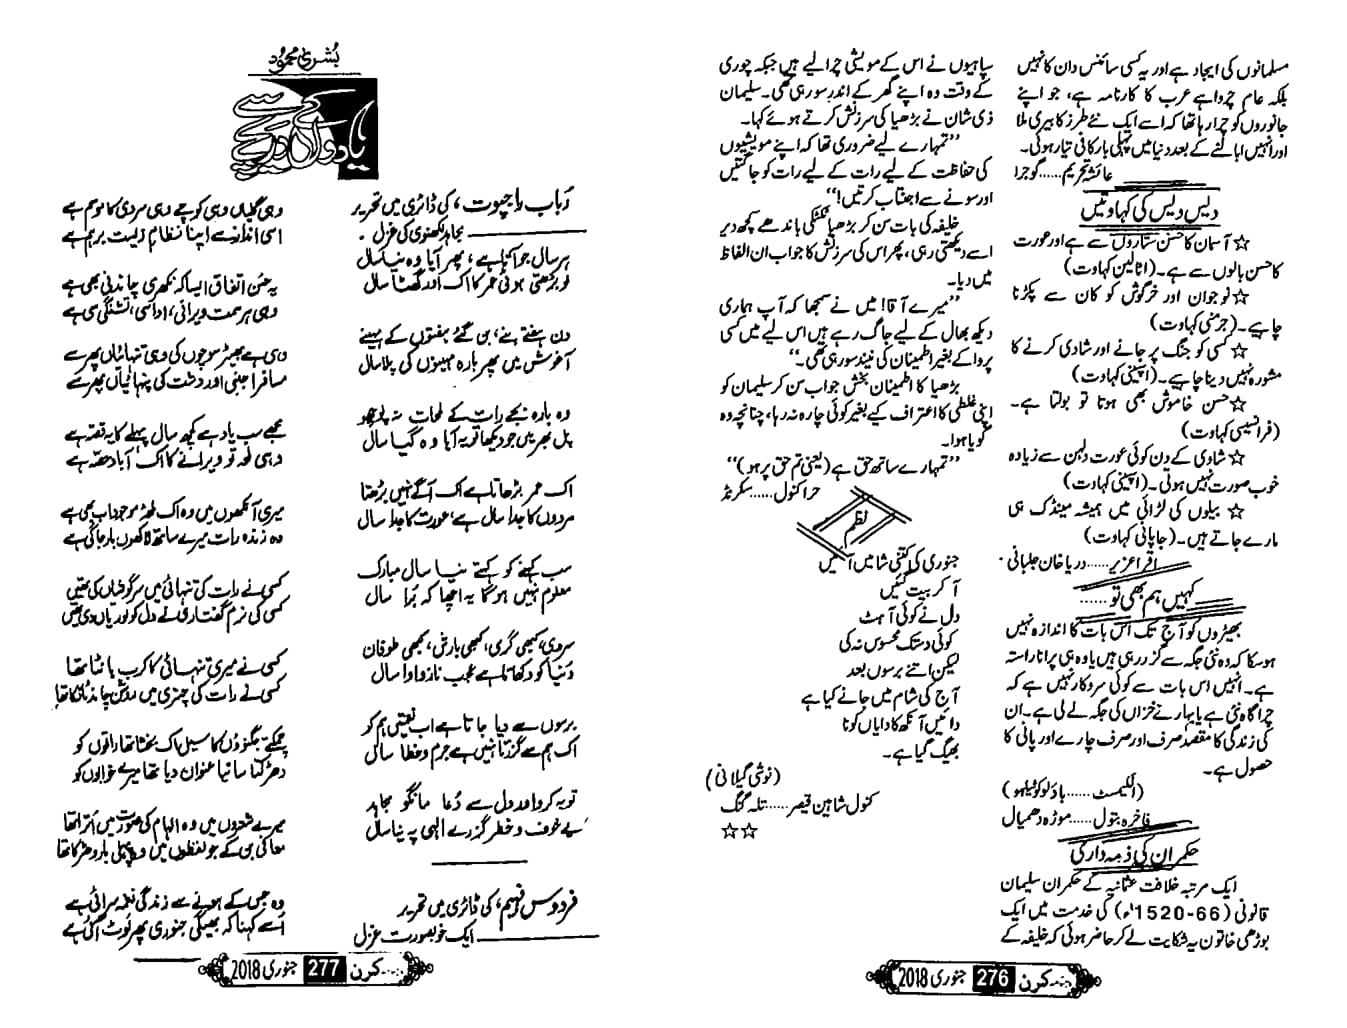 مسلمانوں کی ایجاد ہے اور یہ کسی سائنس دان کا نہیں
بلکہ عام چرواہے عرب کا کارنامہ ہے، جو اپنے
جانوروں کو چرا رہا تھا کہ اسے ایک نئے طرز کا بیری ملا
اور انہیں ابالنے کے بعد دنیا میں پہلی بار کافی تیار ہوئی۔
عائشہ تحریم......گوجرا
دیس دیس کی کہاوتیں
☆ آسمان کا حسن ستاروں سے ہے اور عورت
کا حسن بالوں سے ہے۔ (اٹالین کہاوت)
☆ نوجوان اور خرگوش کو کان سے پکڑنا
چاہیے۔ (جرمنی کہاوت)
☆ کسی کو جنگ پر جانے اور شادی کرنے کا
مشورہ نہیں دینا چاہیے۔ (اسپینی کہاوت)
☆ حسن خاموش بھی ہوتا تو بولتا ہے۔
(فرانسیسی کہاوت)
☆ شادی کے دن کوئی عورت دلہن سے زیادہ
خوب صورت نہیں ہوتی۔ (اسپینی کہاوت)
☆ بیلوں کی لڑائی میں ہمیشہ مینڈک ہی
مارے جاتے ہیں۔ (جاپانی کہاوت)
اقرا عزیر......دریا خان جلبانی
کہیں ہم بھی تو......
بھیڑوں کو آج تک اس بات کا اندازہ نہیں
ہو سکا کہ وہ نئی جگہ سے گزر رہی ہیں یا وہ ہی پرانا راستہ
ہے۔ انہیں اس بات سے کوئی سروکار نہیں ہے کہ
چراگاہ نئی ہے یا بہار نے خزاں کی جگہ لے لی ہے۔ ان
کی زندگی کا مقصد صرف اور صرف چارے اور پانی کا
حصول ہے۔
(الکیمسٹ......پاؤلو کوئیلہو)
فاخرہ بتول......موڑہ دھمیال
حکمران کی ذمہ داری
ایک مرتبہ خلافت عثمانیہ کے حکمران سلیمان
قانونی (1520-66ء) کی خدمت میں ایک
بوڑھی خاتون یہ شکایت لے کر حاضر ہوئی کہ خلیفہ کے
سپاہیوں نے اس کے مویشی چرا لیے ہیں جبکہ چوری
کے وقت وہ اپنے گھر کے اندر سو رہی تھی۔ سلیمان
ذی شان نے بڑھیا کی سرزنش کرتے ہوئے کہا۔
”تمہارے لیے ضروری تھا کہ اپنے مویشیوں
کی حفاظت کے لیے رات کے لیے رات کو جاگتیں
اور سونے سے اجتناب کرتیں!“
خلیفہ کی بات سن کر بڑھیا ٹکٹکی باندھے کچھ دیر
اسے دیکھتی رہی، پھر اس کی سرزنش کا جواب ان الفاظ
میں دیا۔
”میرے آقا! میں نے سمجھا کہ آپ ہماری
دیکھ بھال کے لیے جاگ رہے ہیں اس لیے میں کسی
پروا کے بغیر اطمینان کی نیند سو رہی تھی۔“
بڑھیا کا اطمینان بخش جواب سن کر سلیمان کو
اپنی غلطی کا اعتراف کیے بغیر کوئی چارہ نہ رہا، چنانچہ وہ
گویا ہوا۔
”تمہارے ساتھ حق ہے (یعنی تم حق پر ہو)“
حرا کنول......سکرنڈ
نظم
جنوری کی کتنی شامیں آئیں
آ کر بیت گئیں
دل نے کوئی آہٹ
کوئی دستک محسوس نہ کی
لیکن اتنے برسوں بعد
آج کی شام میں جانے کیا ہے
دائیں آنکھ کا دایاں کونا
بھیگ گیا ہے۔
(نوشی گیلانی)
کنول شاہین قیصر......تلہ گنگ
☆☆
کرن 276 جنوری 2018
بُشریٰ محمود
یادوں کے دریچے
رباب راجپوت، کی ڈائری میں تحریر
مجاہد لکھنوی کی غزل
ہر سال جو آتا ہے، پھر آیا وہ نیا سال
لو بڑھتی ہوئی عمر کا اک اور گھٹا سال
دن ہفتے بنے، بن گئے ہفتوں کے مہینے
آغوش میں پھر بارہ مہینوں کی پلا سال
وہ بارہ بجے رات کے لمحات نہ پوچھو
پل بھر میں جو دیکھا تو یہ آیا وہ گیا سال
اک عمر بڑھاتا ہے اک آگے نہیں بڑھتا
مردوں کا جدا سال ہے، عورت کا جدا سال
سب کہنے کو کہتے نیا سال مبارک
معلوم نہیں ہوگا یہ اچھا کہ برا سال
سردی کبھی گرمی، کبھی بارش، کبھی طوفان
دنیا کو دکھاتا ہے عجب ناز و ادا سال
برسوں سے دیا جاتا ہے اب نعیتیں ہم کو
اک ہم سے گزرتا نہیں بے جرم و خطا سال
توبہ کرو اور دل سے دُعا مانگو مجاہد
بے خوف و خطر گزرے الٰہی یہ نیا سال
فردوس فہیم، کی ڈائری میں تحریر
ایک خوبصورت غزل
وہی گلیاں وہی کوچے وہی سردی کا موسم ہے
اسی انداز سے اپنا نظامِ زیست برہم ہے
یہ حُسن اتفاق ایسا کہ نکھری چاندنی بھی ہے
وہی ہر سمت ویرانی، اداسی، تشنگی سی ہے
وہی ہے بھیڑ سوچوں کی وہی تنہائیاں پھر سے
مسافر اجنبی اور دشت کی پنہائیاں پھر سے
مجھے سب یاد ہے کچھ سال پہلے کا یہ قصہ ہے
وہی لمحہ تو ویرانے کا اک آباد حصہ ہے
میری آنکھوں میں وہ اک لمحہ موجود اب بھی ہے
وہ زندہ رات میرے ساتھ لاکھوں بار جاگی ہے
کسی نے رات کی تنہائی میں سرگوشیاں کی تھیں
کسی کی نرم گفتاری نے دل کو لوریاں دی تھیں
کسی نے میری تنہائی کا کرب بانٹا تھا
کسی نے رات کی چنری میں روشن چاند ٹانکا تھا
چمکتے جگنوؤں کا سیل اک بخشا تھا راتوں کو
دھڑکتا سا نیا عنوان دیا تھا میرے خوابوں کو
میرے شعروں میں وہ الہام کی صورت میں اُترا تھا
معانی بن کے جو لفظوں میں پہلی بار دھڑکا تھا
وہ جس کے ہونے سے زندگی نغمہ سرائی ہے
اُسے کہنا کہ بھیگی جنوری پھر لوٹ آئی ہے
کرن 277 جنوری 2018